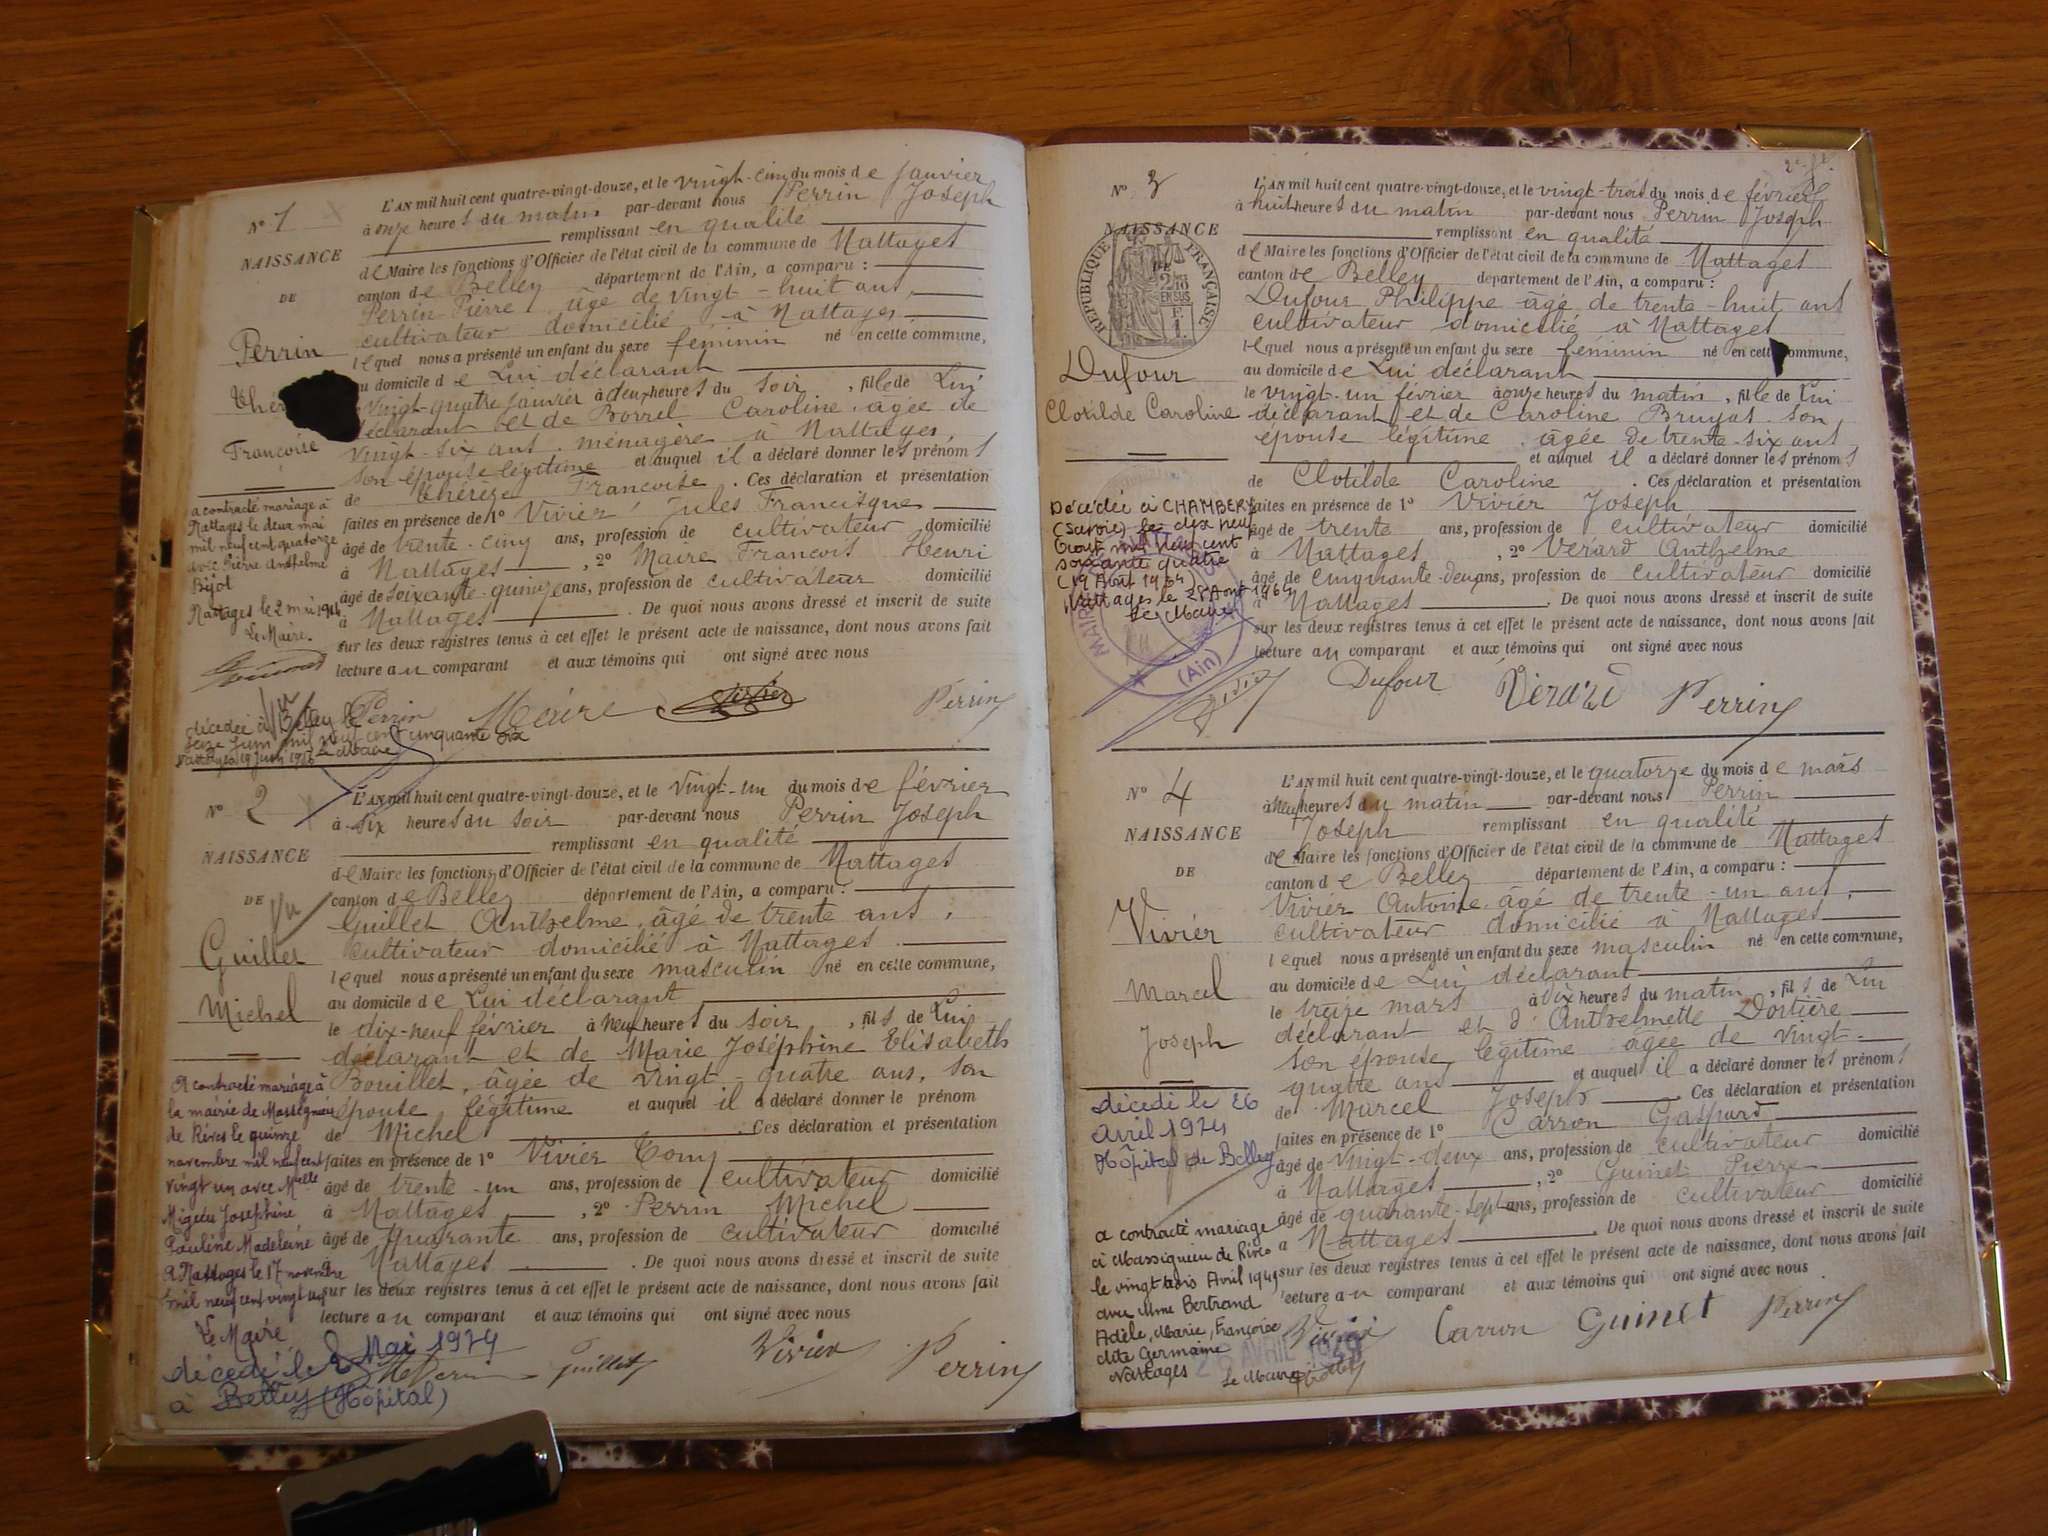 N° 1
NAISSANCE
DE
Perrin
Françoise
a contracté mariage à
Nattages le deux mai
mil neuf cent quatorze
avec Pierre Anthelme
Bijot
Nattages le 2 mai 1914
Le Maire.
Vu
décédée à Belley le
seize juin mil neuf cent cinquante six
Nattages 19 juin 1956 Le Maire
L'AN mil huit cent quatre-vingt-douze, et le vingt-cinq du mois de janvier
à onze heures du matin par-devant nous Perrin Joseph
remplissant en qualité
de Maire les fonctions d'Officier de l'état civil de la commune de Nattages
canton de Belley département de l'Ain, a comparu :
Perrin Pierre âgé de vingt-huit ans,
cultivateur domicilié à Nattages
lequel nous a présenté un enfant du sexe féminin né en cette commune,
au domicile de Lui déclarant
vingt-quatre janvier à deux heures du soir, fille de Lui
déclarant et de Borrel Caroline, âgée de
vingt-six ans, ménagère à Nattages,
son épouse légitime et auquel il a déclaré donner les prénoms
de Thérèze Françoise. Ces déclaration et présentation
faites en présence de 1° Vivier Jules Francisque
âgé de trente-cinq ans, profession de cultivateur domicilié
à Nattages, 2° Maire François Henri
âgé de soixante-quinze ans, profession de cultivateur domicilié
à Nattages. De quoi nous avons dressé et inscrit de suite
sur les deux registres tenus à cet effet le présent acte de naissance, dont nous avons fait
lecture au comparant et aux témoins qui ont signé avec nous
Perrin Maire Vivier Perrin
N° 2
NAISSANCE
DE
Vu
Guillet
Michel
A contracté mariage à
la mairie de Massignieu
de Rives le quinze
novembre mil neuf cent
vingt un avec Melle
Migieu Josephine
Pauline Madeleine
A Nattages le 17 novembre
mil neuf cent vingt un
Le Maire
décédé le 2 Mai 1974
à Belley (Hôpital)
L'AN mil huit cent quatre-vingt-douze, et le vingt-un du mois de février
à six heures du soir par-devant nous Perrin Joseph
remplissant en qualité
de Maire les fonctions d'Officier de l'état civil de la commune de Nattages
canton de Belley département de l'Ain, a comparu :
Guillet Anthelme, âgé de trente ans,
cultivateur domicilié à Nattages
lequel nous a présenté un enfant du sexe masculin né en cette commune,
au domicile de Lui déclarant
le dix-neuf février à neuf heures du soir, fils de Lui
déclarant et de Marie Joséphine Elisabeth
Bouillet, âgée de vingt-quatre ans, son
épouse légitime et auquel il a déclaré donner le prénom
de Michel. Ces déclaration et présentation
faites en présence de 1° Vivier Tony
âgé de trente-un ans, profession de cultivateur domicilié
à Nattages, 2° Perrin Michel
âgé de quarante ans, profession de cultivateur domicilié
à Nattages. De quoi nous avons dressé et inscrit de suite
sur les deux registres tenus à cet effet le présent acte de naissance, dont nous avons fait
lecture au comparant et aux témoins qui ont signé avec nous
Guillet Vivier Perrin
N° 3
NAISSANCE
DE
RÉPUBLIQUE FRANÇAISE
2/10 EN SUS
Dufour
Clotilde Caroline
Décédée à CHAMBERY
(Savoie) le dix neuf
Août mil neuf cent
soixante quatre
(19 Août 1964)
Nattages le 28 Août 1964
Le Maire
MAIRIE
(Ain)
L'AN mil huit cent quatre-vingt-douze, et le vingt-trois du mois de février
à huit heures du matin par-devant nous Perrin Joseph
remplissant en qualité
de Maire les fonctions d'Officier de l'état civil de la commune de Nattages
canton de Belley département de l'Ain, a comparu :
Dufour Philippe âgé de trente-huit ans
cultivateur domicilié à Nattages
lequel nous a présenté un enfant du sexe féminin né en cette commune,
au domicile de Lui déclarant
le vingt-un février à onze heures du matin, fille de Lui
déclarant et de Caroline Bruyas son
épouse légitime, âgée de trente-six ans
et auquel il a déclaré donner les prénoms
de Clotilde Caroline. Ces déclaration et présentation
faites en présence de 1° Vivier Joseph
âgé de trente ans, profession de cultivateur domicilié
à Nattages, 2° Vérard Anthelme
âgé de cinquante-deux ans, profession de cultivateur domicilié
à Nattages. De quoi nous avons dressé et inscrit de suite
sur les deux registres tenus à cet effet le présent acte de naissance, dont nous avons fait
lecture au comparant et aux témoins qui ont signé avec nous
Dufour Vérard Perrin
N° 4
NAISSANCE
DE
Vivier
Marcel
Joseph
décédé le 26
avril 1974
Hôpital de Belley
a contracté mariage
à Massignieu de Rives
le vingt trois Avril 1949
avec Mme Bertrand
Adèle, Marie, Françoise
dite Germaine
Nattages
Le Maire
L'AN mil huit cent quatre-vingt-douze, et le quatorze du mois de mars
à neuf heures du matin par-devant nous Perrin
Joseph remplissant en qualité
de Maire les fonctions d'Officier de l'état civil de la commune de Nattages
canton de Belley département de l'Ain, a comparu :
Vivier Antoine âgé de trente-un ans,
cultivateur domicilié à Nattages
lequel nous a présenté un enfant du sexe masculin né en cette commune,
au domicile de Lui déclarant
le treize mars à dix heures du matin, fils de Lui
déclarant et d'Anthelmette Doitière
son épouse légitime âgée de vingt-
quatre ans et auquel il a déclaré donner les prénoms
de Marcel Joseph. Ces déclaration et présentation
faites en présence de 1° Carron Gaspard
âgé de vingt-deux ans, profession de cultivateur domicilié
à Nattages, 2° Guinet Pierre
âgé de quarante-sept ans, profession de cultivateur domicilié
à Nattages. De quoi nous avons dressé et inscrit de suite
sur les deux registres tenus à cet effet le présent acte de naissance, dont nous avons fait
lecture au comparant et aux témoins qui ont signé avec nous
Vivier Carron Guinet Perrin